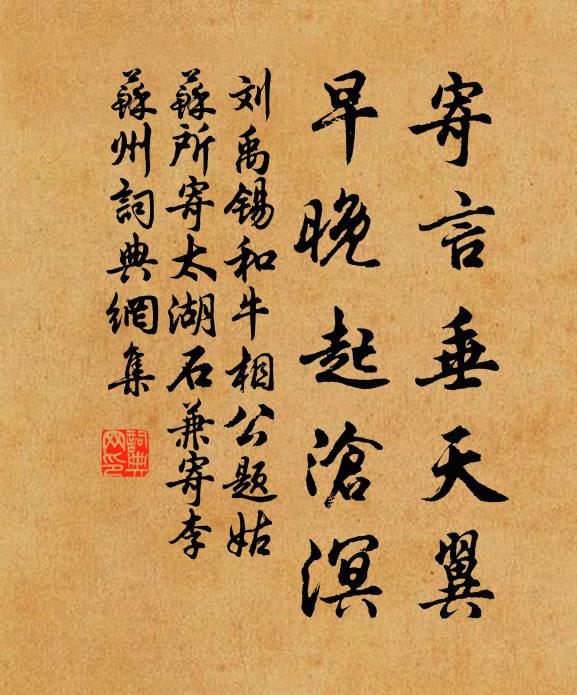 寄言垂天翼
早晚起滄溟
刘禹锡和牛相公題姑
蘇所寄太湖石兼寄李
蘇州詞典網集
詞典
网印